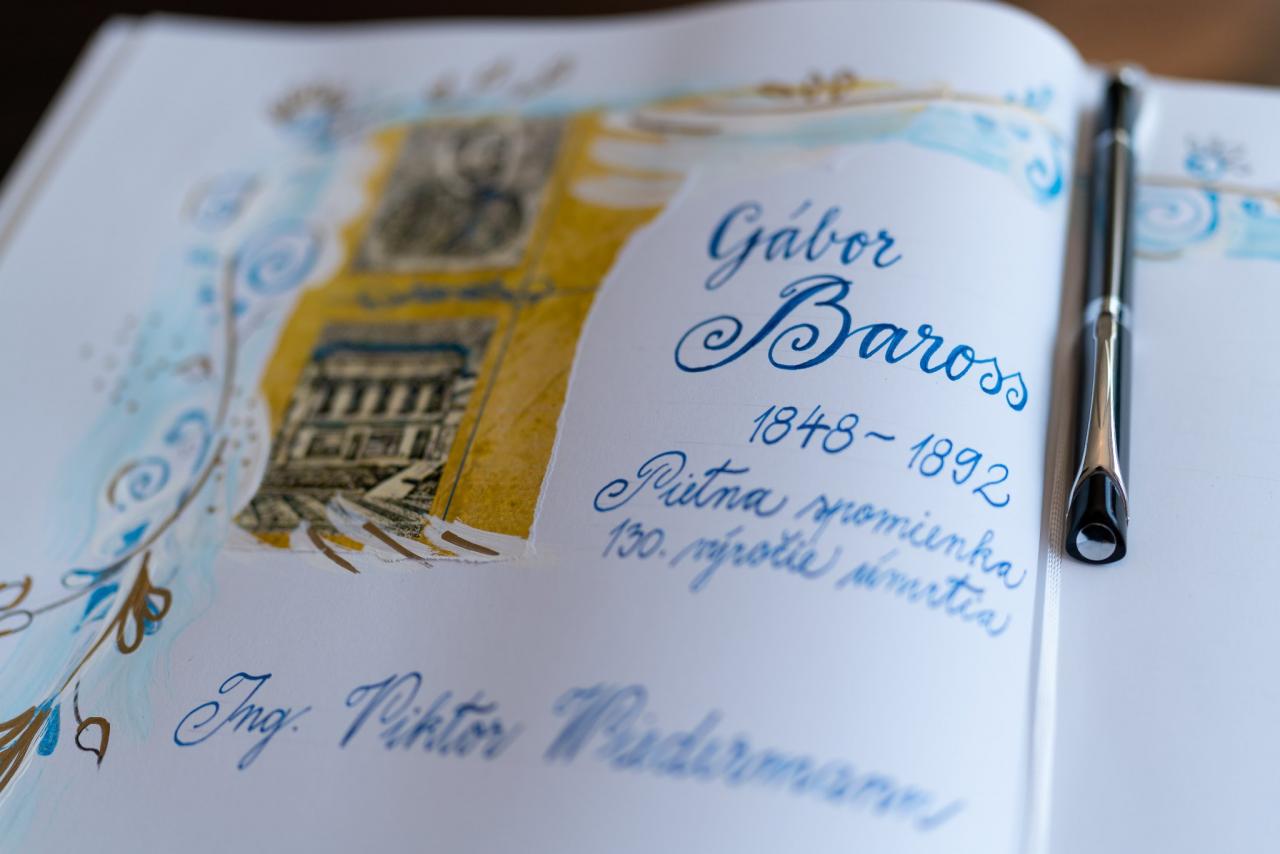 Gábor
Baross
1848~1892
Pietna spomienka
130. výročie úmrtia
Ing. Viktor Wiedermann